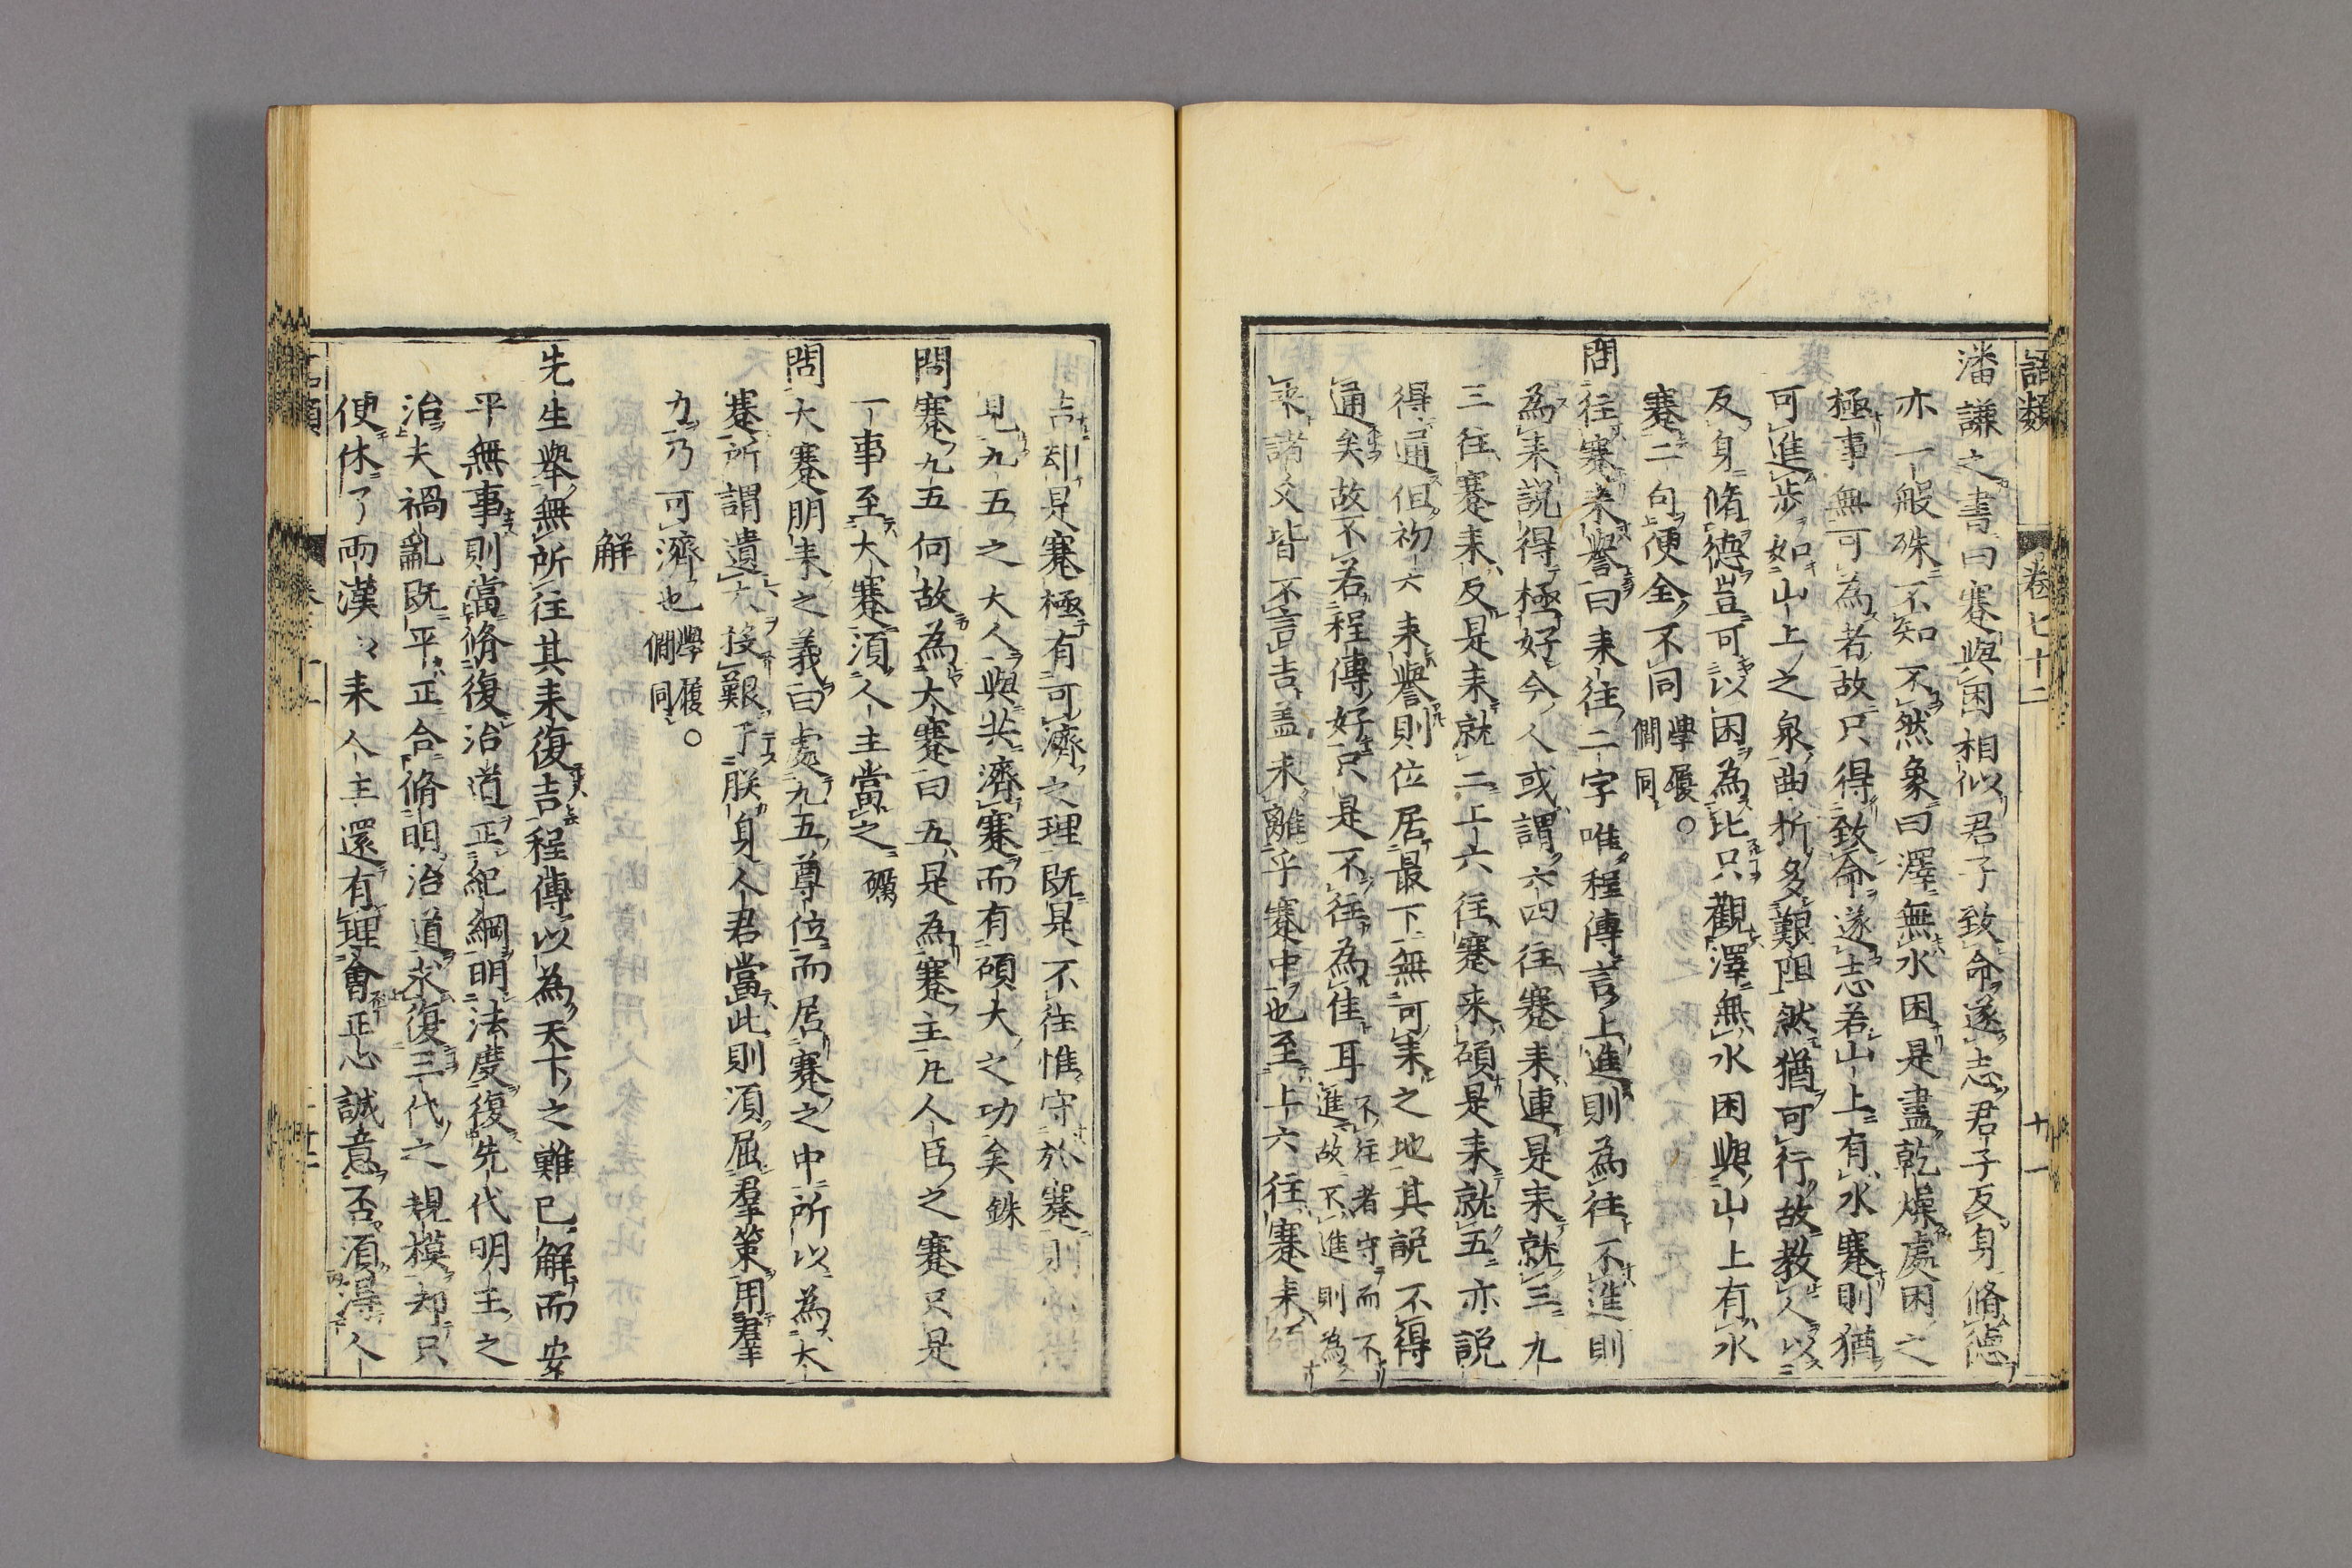 語類 卷七十二 十一
潘謙之書曰蹇與困相似君子致命遂志君子反身脩德
亦一般殊不知不然象曰澤無水困是盡乾燥處困之
極事無可為者故只得致命遂志若山上有水蹇則猶
可進步如山上之泉曲折多艱阻然猶可行故教人以
反身脩德豈可以困為比只觀澤無水困與山上有水
蹇二句便全不同 學履 僩同 ○
問往蹇來譽曰来往二字唯程傳言上進則為往不進則
為来說得極好今人或謂六四往蹇来連是来就三九
三往蹇来反是来就二上六往蹇来碩是来就五亦說
得通但初六来譽則位居最下無可来之地其說不得
通矣故不若程傳好只是不往為佳耳 不往者守而不 進故不進則為
来諸爻皆不言吉蓋未離乎蹇中也至上六往蹇来碩
吉却是蹇極有可濟之理既是不往惟守於蹇則
見九五之大人與共濟蹇而有碩大之功矣 銖
問蹇九五何故為大蹇曰五是為蹇主凡人臣之蹇只是
一事至大蹇須人主當之 礪
問大蹇朋来之義曰處九五尊位而居蹇之中所以為大
蹇所謂遺大投艱于朕身人君當此則須屈羣策用羣
力乃可濟也 學履 僩同 ○
解
先生舉無所往其来復吉程傳以為天下之難已解而安
平無事則當脩復治道正紀綱明法度復先代明王之
治夫禍亂既平正合脩明治道求復三代之規模却只
便休了兩漢以来人主還有理會正心誠意否須得人